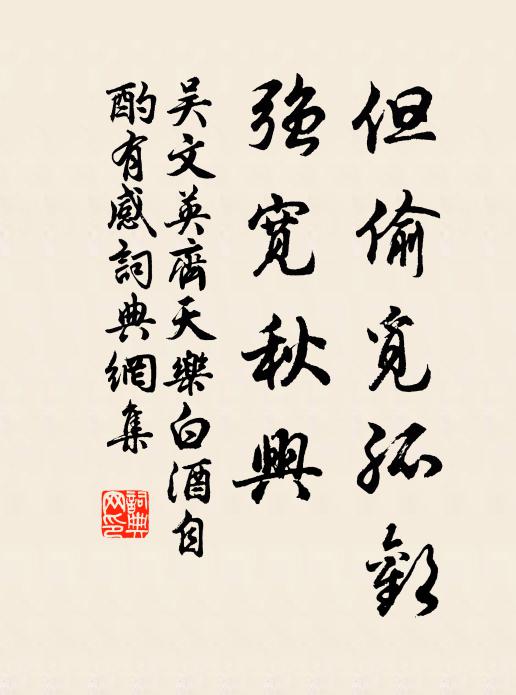 但偷覓孤歡
強寬秋興
吳文英齊天樂白酒自
酌有感詞典網集
詞典
网印